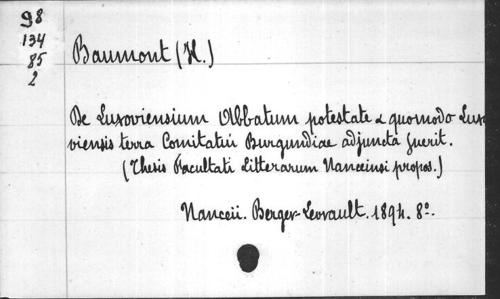 98
134
85
2
Baumont (H.)
De Luxoviensium Abbatum potestate & quomodo Luxo
viensis terra Comitatui Burgundiae adjuncta fuerit.
(Thesis Facultati Litterarum Nanceinsi propos.)
Nanceii. Berger-Levrault. 1894. 8º.